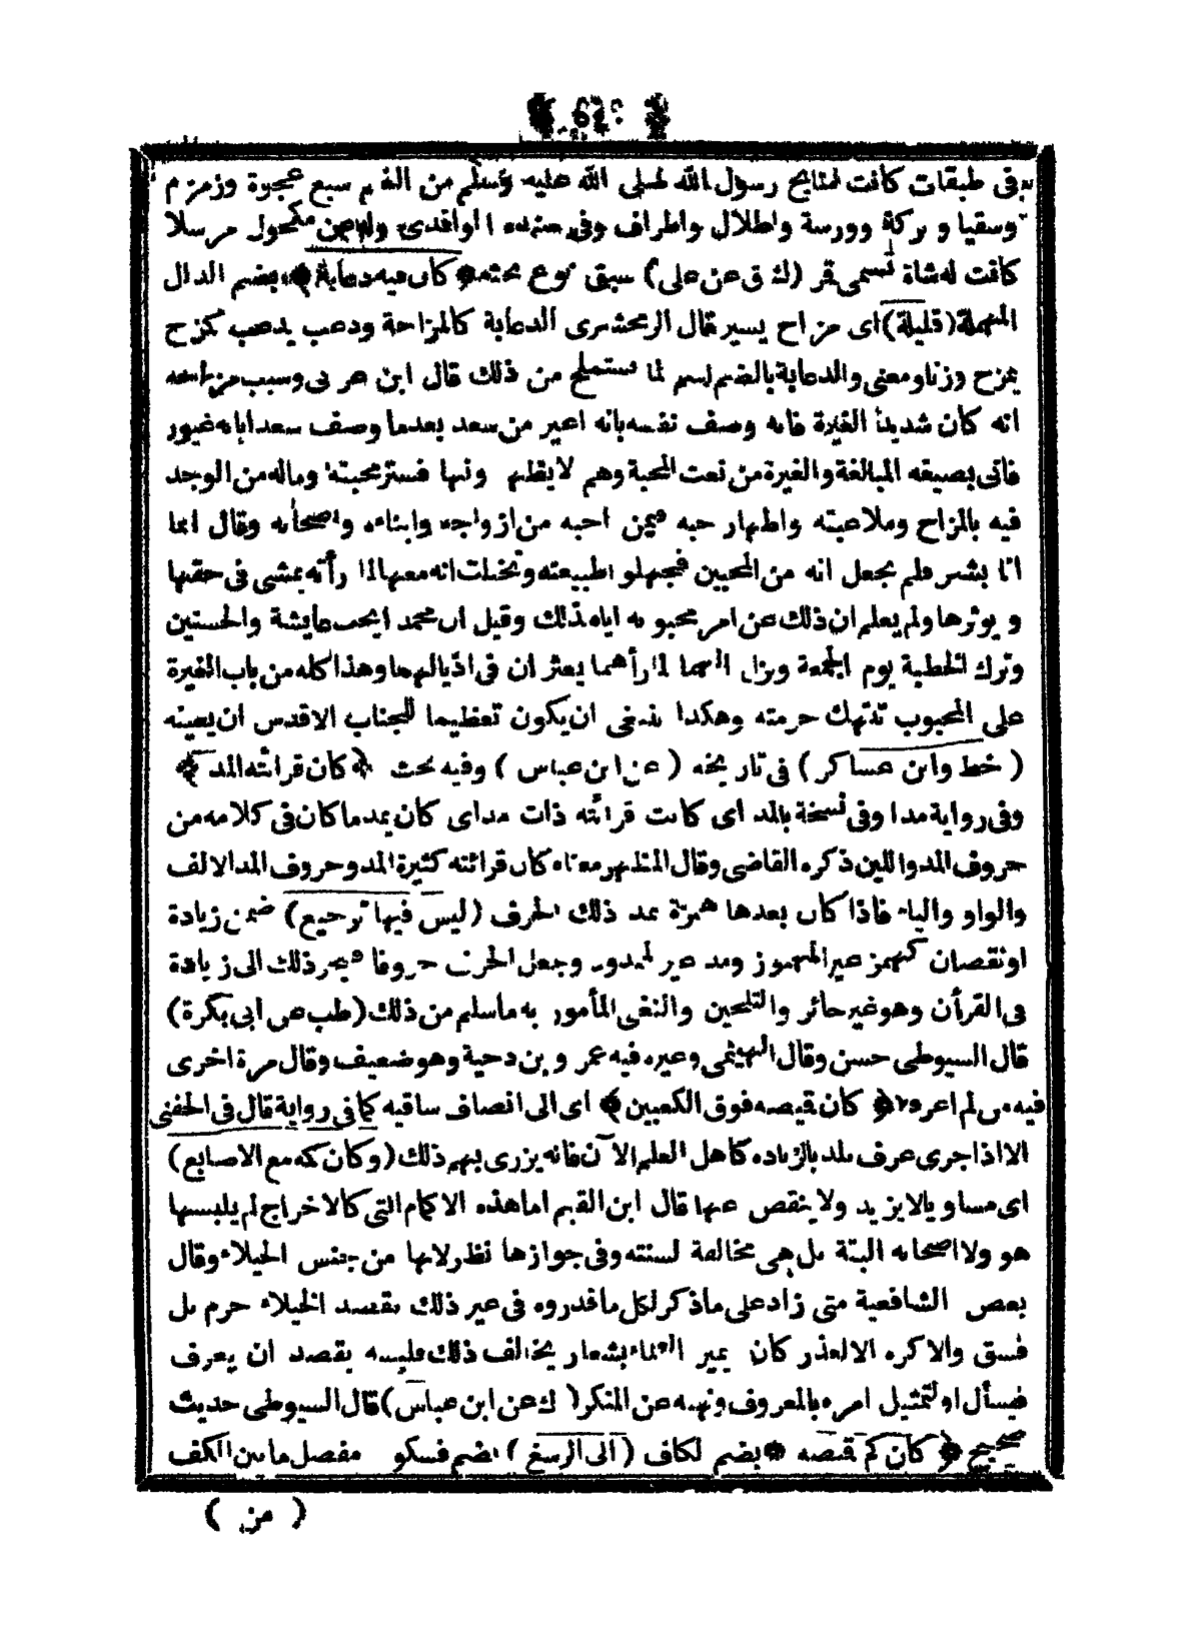 في طبقات كانت منايح رسول الله صلى الله عليه وسلم من الغنم سبع عجوة وزمزم
وسقيا و بركة وورسة واطلال واطراف وفي سنده الواقدى وله عن مكحول مرسلا
كانت له شاة تسمى قمر (ك ق عن على) سبق نوع بحثه ﴿ كان فيه دعابة ﴾ بضم الدال
المهملة (قليلة) اى مزاح يسير قال الزمخشرى الدعابة كالمزاحة ودعب يدعب كمزح
يمزح وزنا ومعنى والدعابة بالضم اسم لما يستملح من ذلك قال ابن عربى وسبب مزاحه
انه كان شديد الغيرة فانه وصف نفسه بانه اغير من سعد بعدما وصف سعدا بانه غيور
فاتى بصيغة المبالغة والغيرة من نعت المحبة وهم لا يظهرونها فستر محبته وماله من الوجد
فيه بالمزاح وملاعبته واظهار حبه فيمن احبه من ازواجه وابناءه واصحابه وقال انما
انا بشر فلم يجعل انه من المحبين فجهلوا طبيعته وتخيلت انه معها لما رأته يمشى في حقها
و يوثرها ولم يعلم ان ذلك عن امر محبوبه اياه بذلك وقيل ان محمد ايحب عايشة والحسنين
وترك الخطبة يوم الجمعة ونزل اليهما لما رأهما يعثران في اذيالهما وهذا كله من باب الغيرة
على المحبوب تنتهك حرمته وهكذا ينبغى ان يكون تعظيما للجناب الاقدس ان يعينه
(خط وابن عساكر) في تاريخه (عن ابن عباس) وفيه بحث ﴿ كان قرائته المد ﴾
وفي رواية مدا وفي نسخة بالمد اى كانت قرائته ذات مد اى كان يمد ما كان في كلامه من
حروف المد واللين ذكره القاضى وقال المظهر معناه كان قرائته كثيرة المد وحروف المد الالف
والواو والياء فاذا كان بعدها همزة يمد ذلك الحرف (ليس فيها ترجيع) ضمن زيادة
او نقصان كهمز غير المهموز ومد غير الممدود وجعل الحرف حروفا فيجر ذلك الى زيادة
في القرأن وهو غير جائز والتلحين والتغنى المأمور به ما سلم من ذلك (طب عن ابى بكرة)
قال السيوطى حسن وقال الهيثمى وغيره فيه عمرو بن دحية وهو ضعيف وقال مرة اخرى
فيه من لم اعرفه ﴿ كان قيصه فوق الكعبين ﴾ اى الى انصاف ساقيه كما في رواية قال في الحفنى
الا اذا جرى عرف بلد بالزياده كاهل العلم الآن فانه يزرى بهم ذلك (وكان كمه مع الاصابع)
اى مساويا لا يزيد ولا ينقص عنها قال ابن القيم اما هذه الاكمام التى كالاخراج لم يلبسها
هو ولا اصحابه البتة بل هى مخالفة لسنته وفي جوازها نظر لانها من جنس الخيلاء وقال
بعض الشافعية متى زاد على ما ذكر لكل ما قدروه في غير ذلك بقصد الخيلاء حرم بل
فسق والا كره الا لعذر كان يميز العلماء بشعار يخالف ذلك فلبسه بقصد ان يعرف
فيسأل او لتمثيل امره بالمعروف ونهيه عن المنكر (ك عن ابن عباس) قال السيوطى حديث
صحيح ﴿ كان كم قيصه ﴾ بضم لكاف (الى الرسغ) بضم فسكو مفصل ما بين الكف
( من )